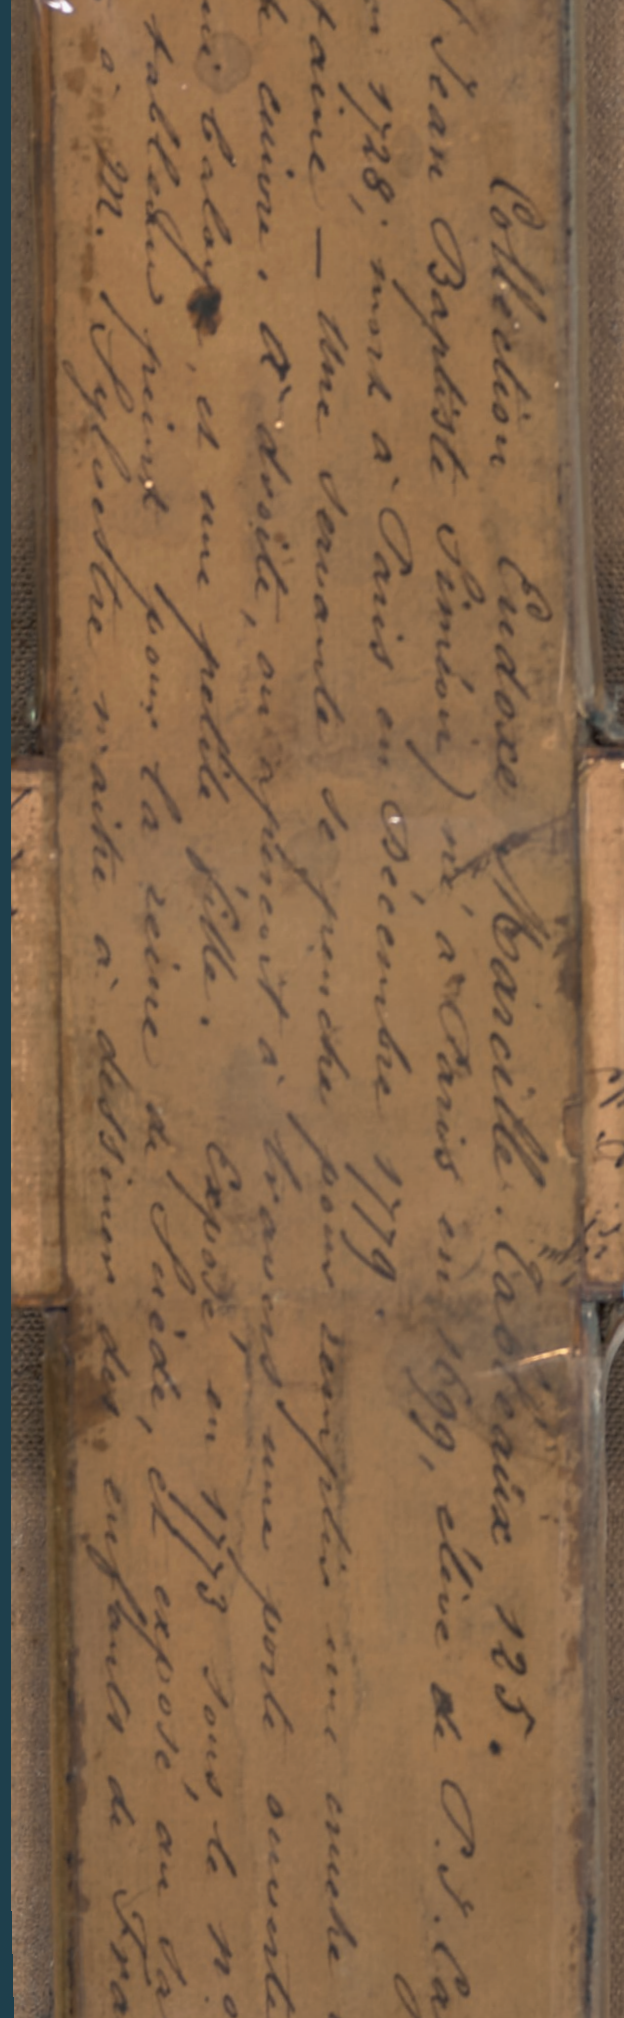 Collection Eudoxe Marcille. Tableaux 125.
Jean Baptiste Siméon) né à Paris en 1699, élève de P. J. Ca
1728; mort à Paris en Décembre 1779.
taine — Une servante se penche pour remplir une cruche
cuivre. A droite, on aperçoit à travers une porte ouverte
balay, et une petite fille. Exposé en 1773 sous le n°
tableau peint pour la reine de Suède, et exposé au Sa
à M. Sylvestre maitre à dessiner des enfants de Fra